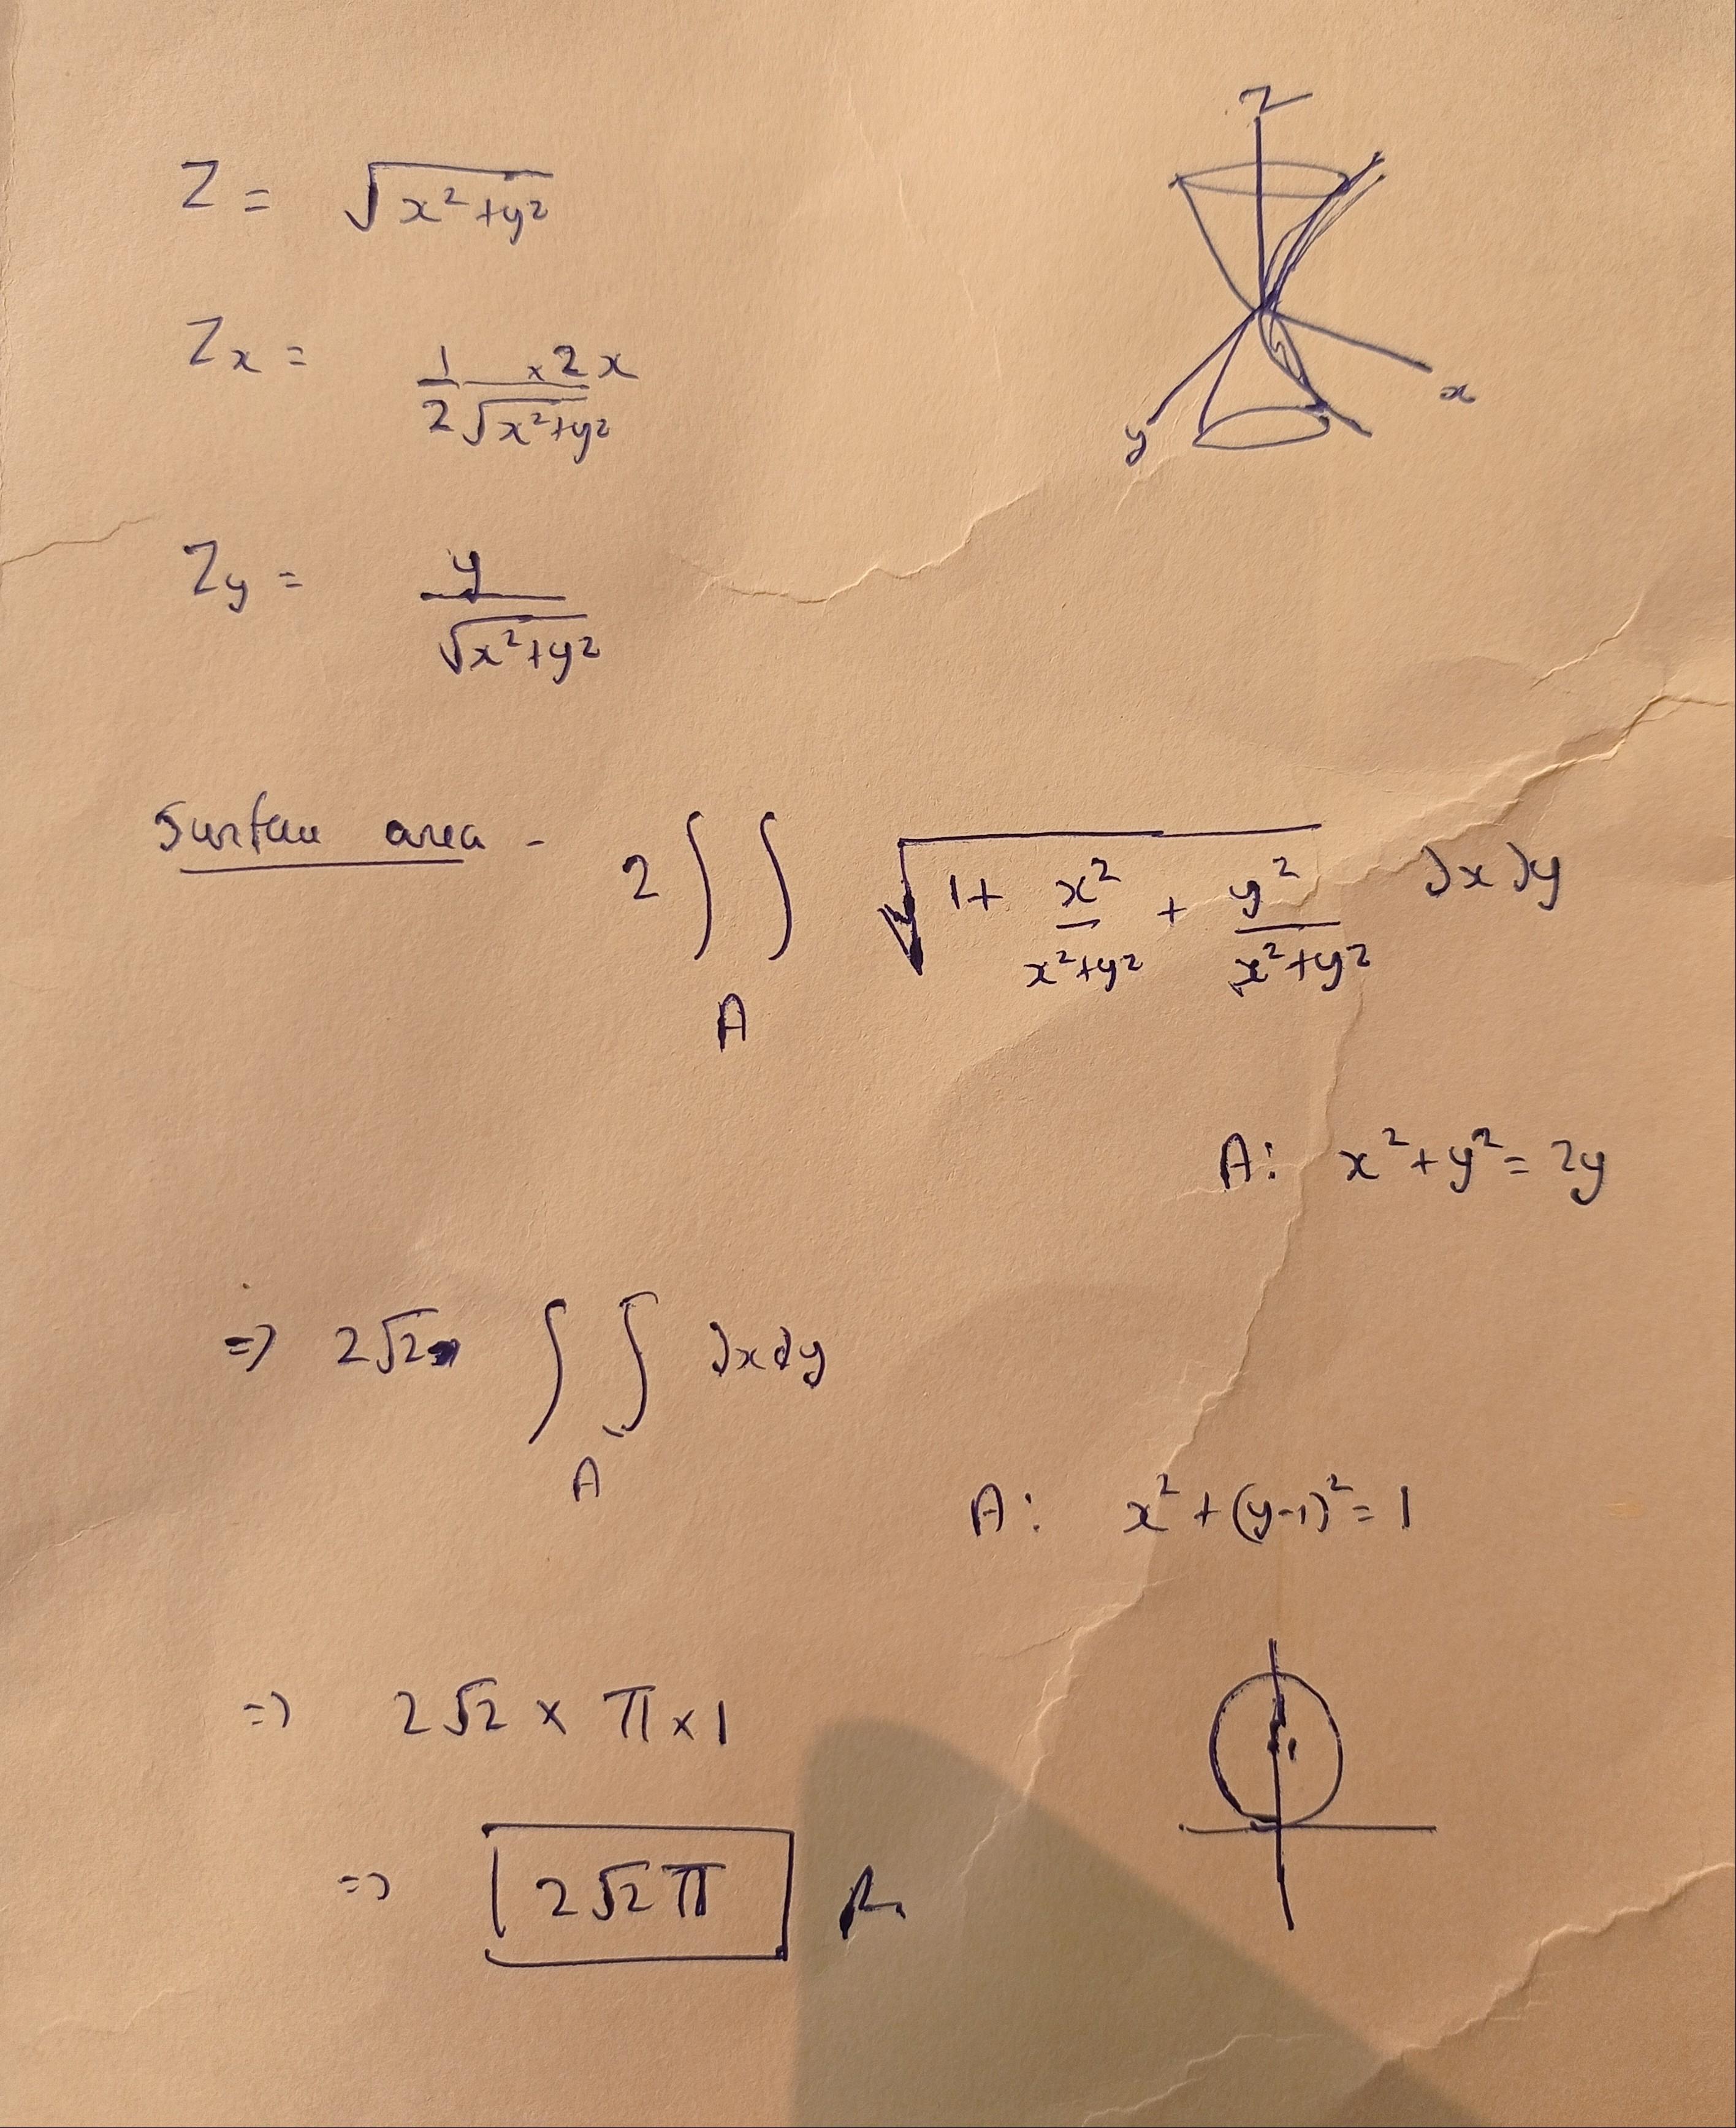 Z
Z = √(x²+y²)
Zx = 1/2 × 2x/√(x²+y²)
x
y
Zy = y/√(x²+y²)
Surface area - 2∫∫ √(1 + x²/(x²+y²) + y²/(x²+y²)) dxdy
A
A: x²+y² = 2y
=> 2√2 ∫∫ dxdy
A
A: x² + (y-1)² = 1
=> 2√2 × π × 1
=> 2√2 π